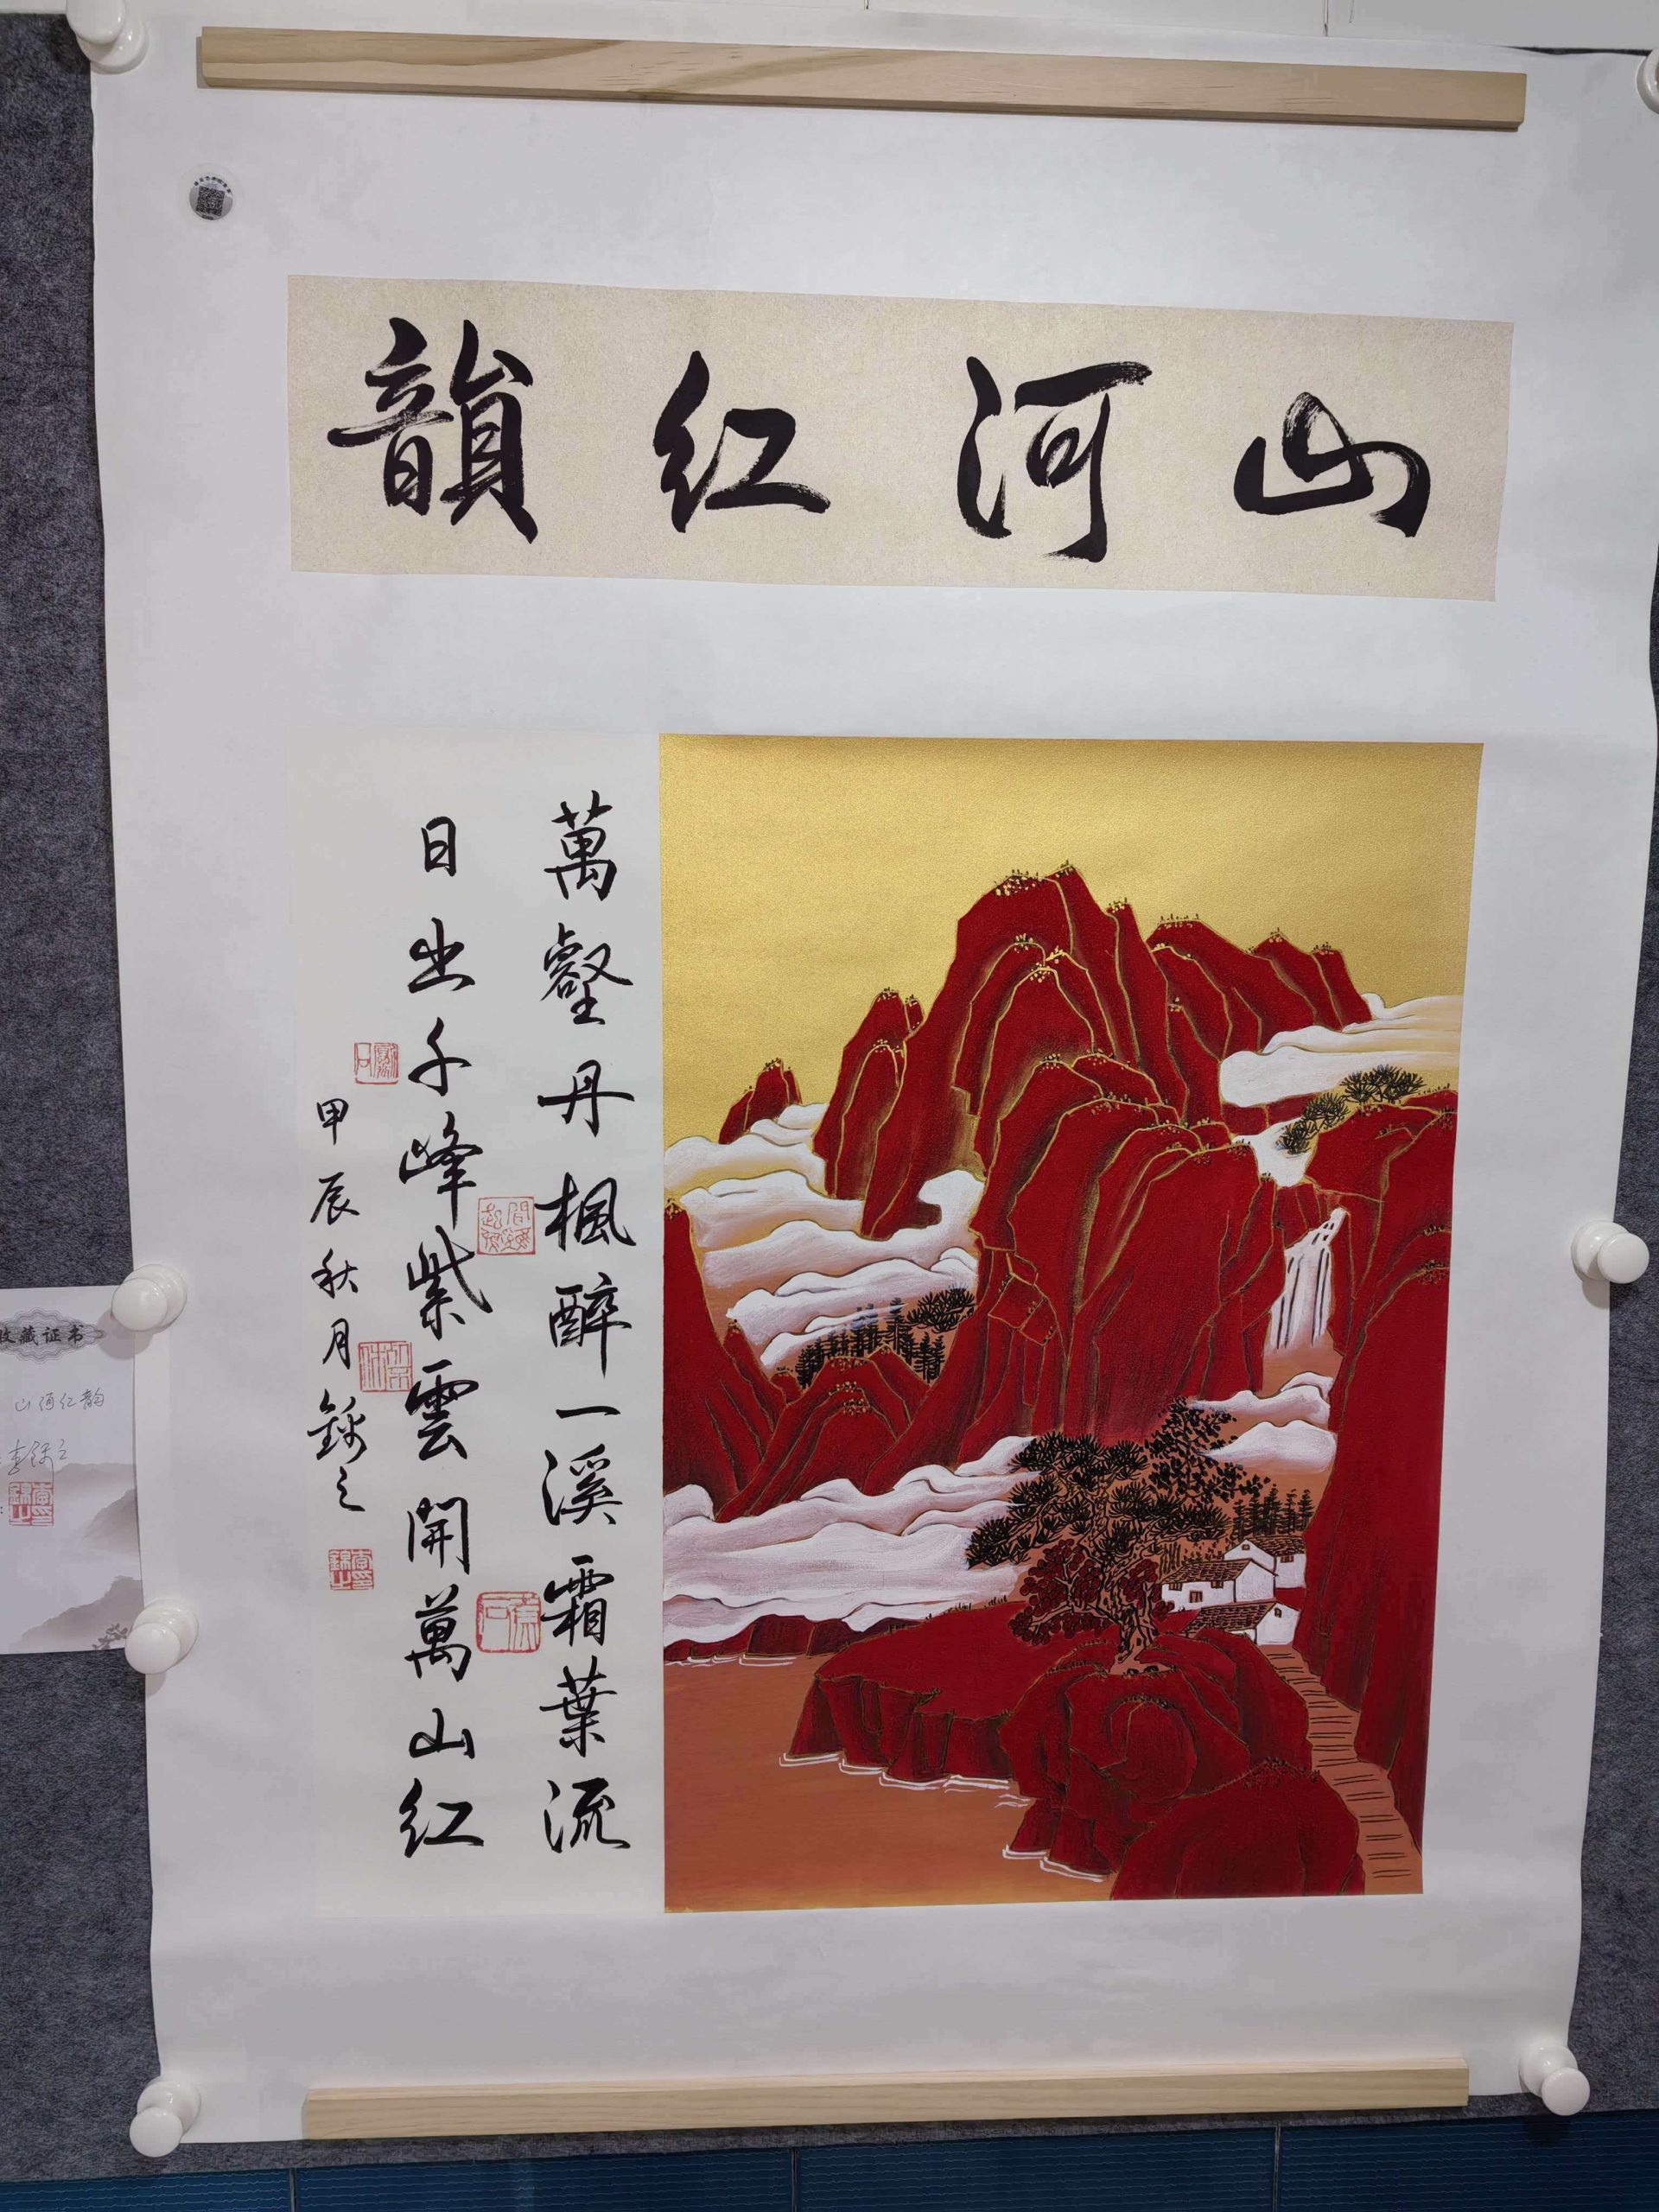 山河红韻
萬壑丹楓醉一溪霜葉流
日出千峰紫雲開萬山红
甲辰秋月錦之
收藏证书
山河红韵